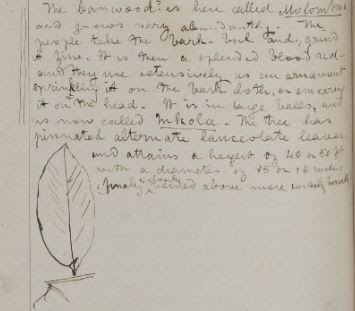 The Camwood is here called Molombwa
and grows very abundantly. The
people take the bark - boil and grind
it fine. It is then a splendid blood red
and they use extensively as an ornament
sprinkling it on the bark cloths, or smearing
it on the head. It is in large balls, and
is now called Inkola. The tree has
pinnated alternate lanceolate leaves
and attains a height of 40 or 50 ft
with a diameter of 15 or 18 inches
finely closely veined above more